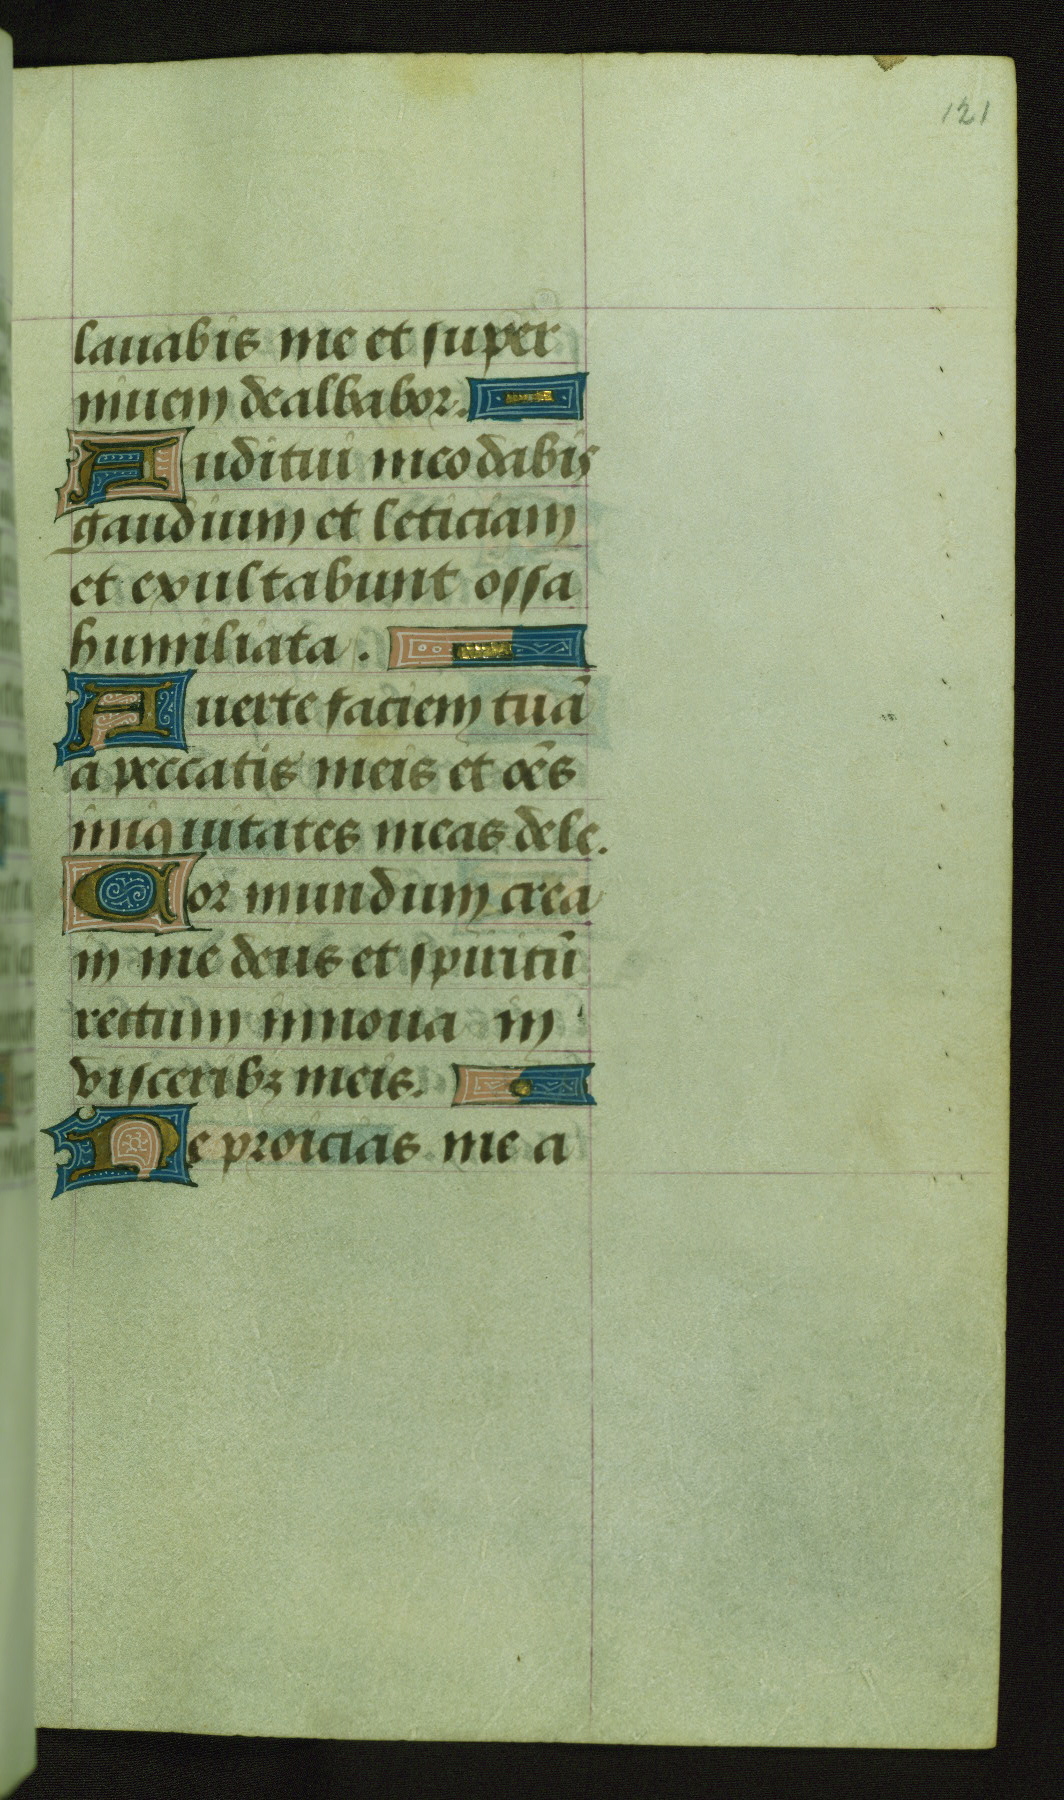 121
lauabis me et super
niuem dealbabor.
Auditui meo dabis
gaudium et leticiam
et exultabunt ossa
humiliata.
Auerte faciem tuā
a peccatis meis et oēs
iniquitates meas dele.
Cor mundum crea
in me deus et spiritū
rectum innoua in
visceribꝫ meis.
Ne proicias me a